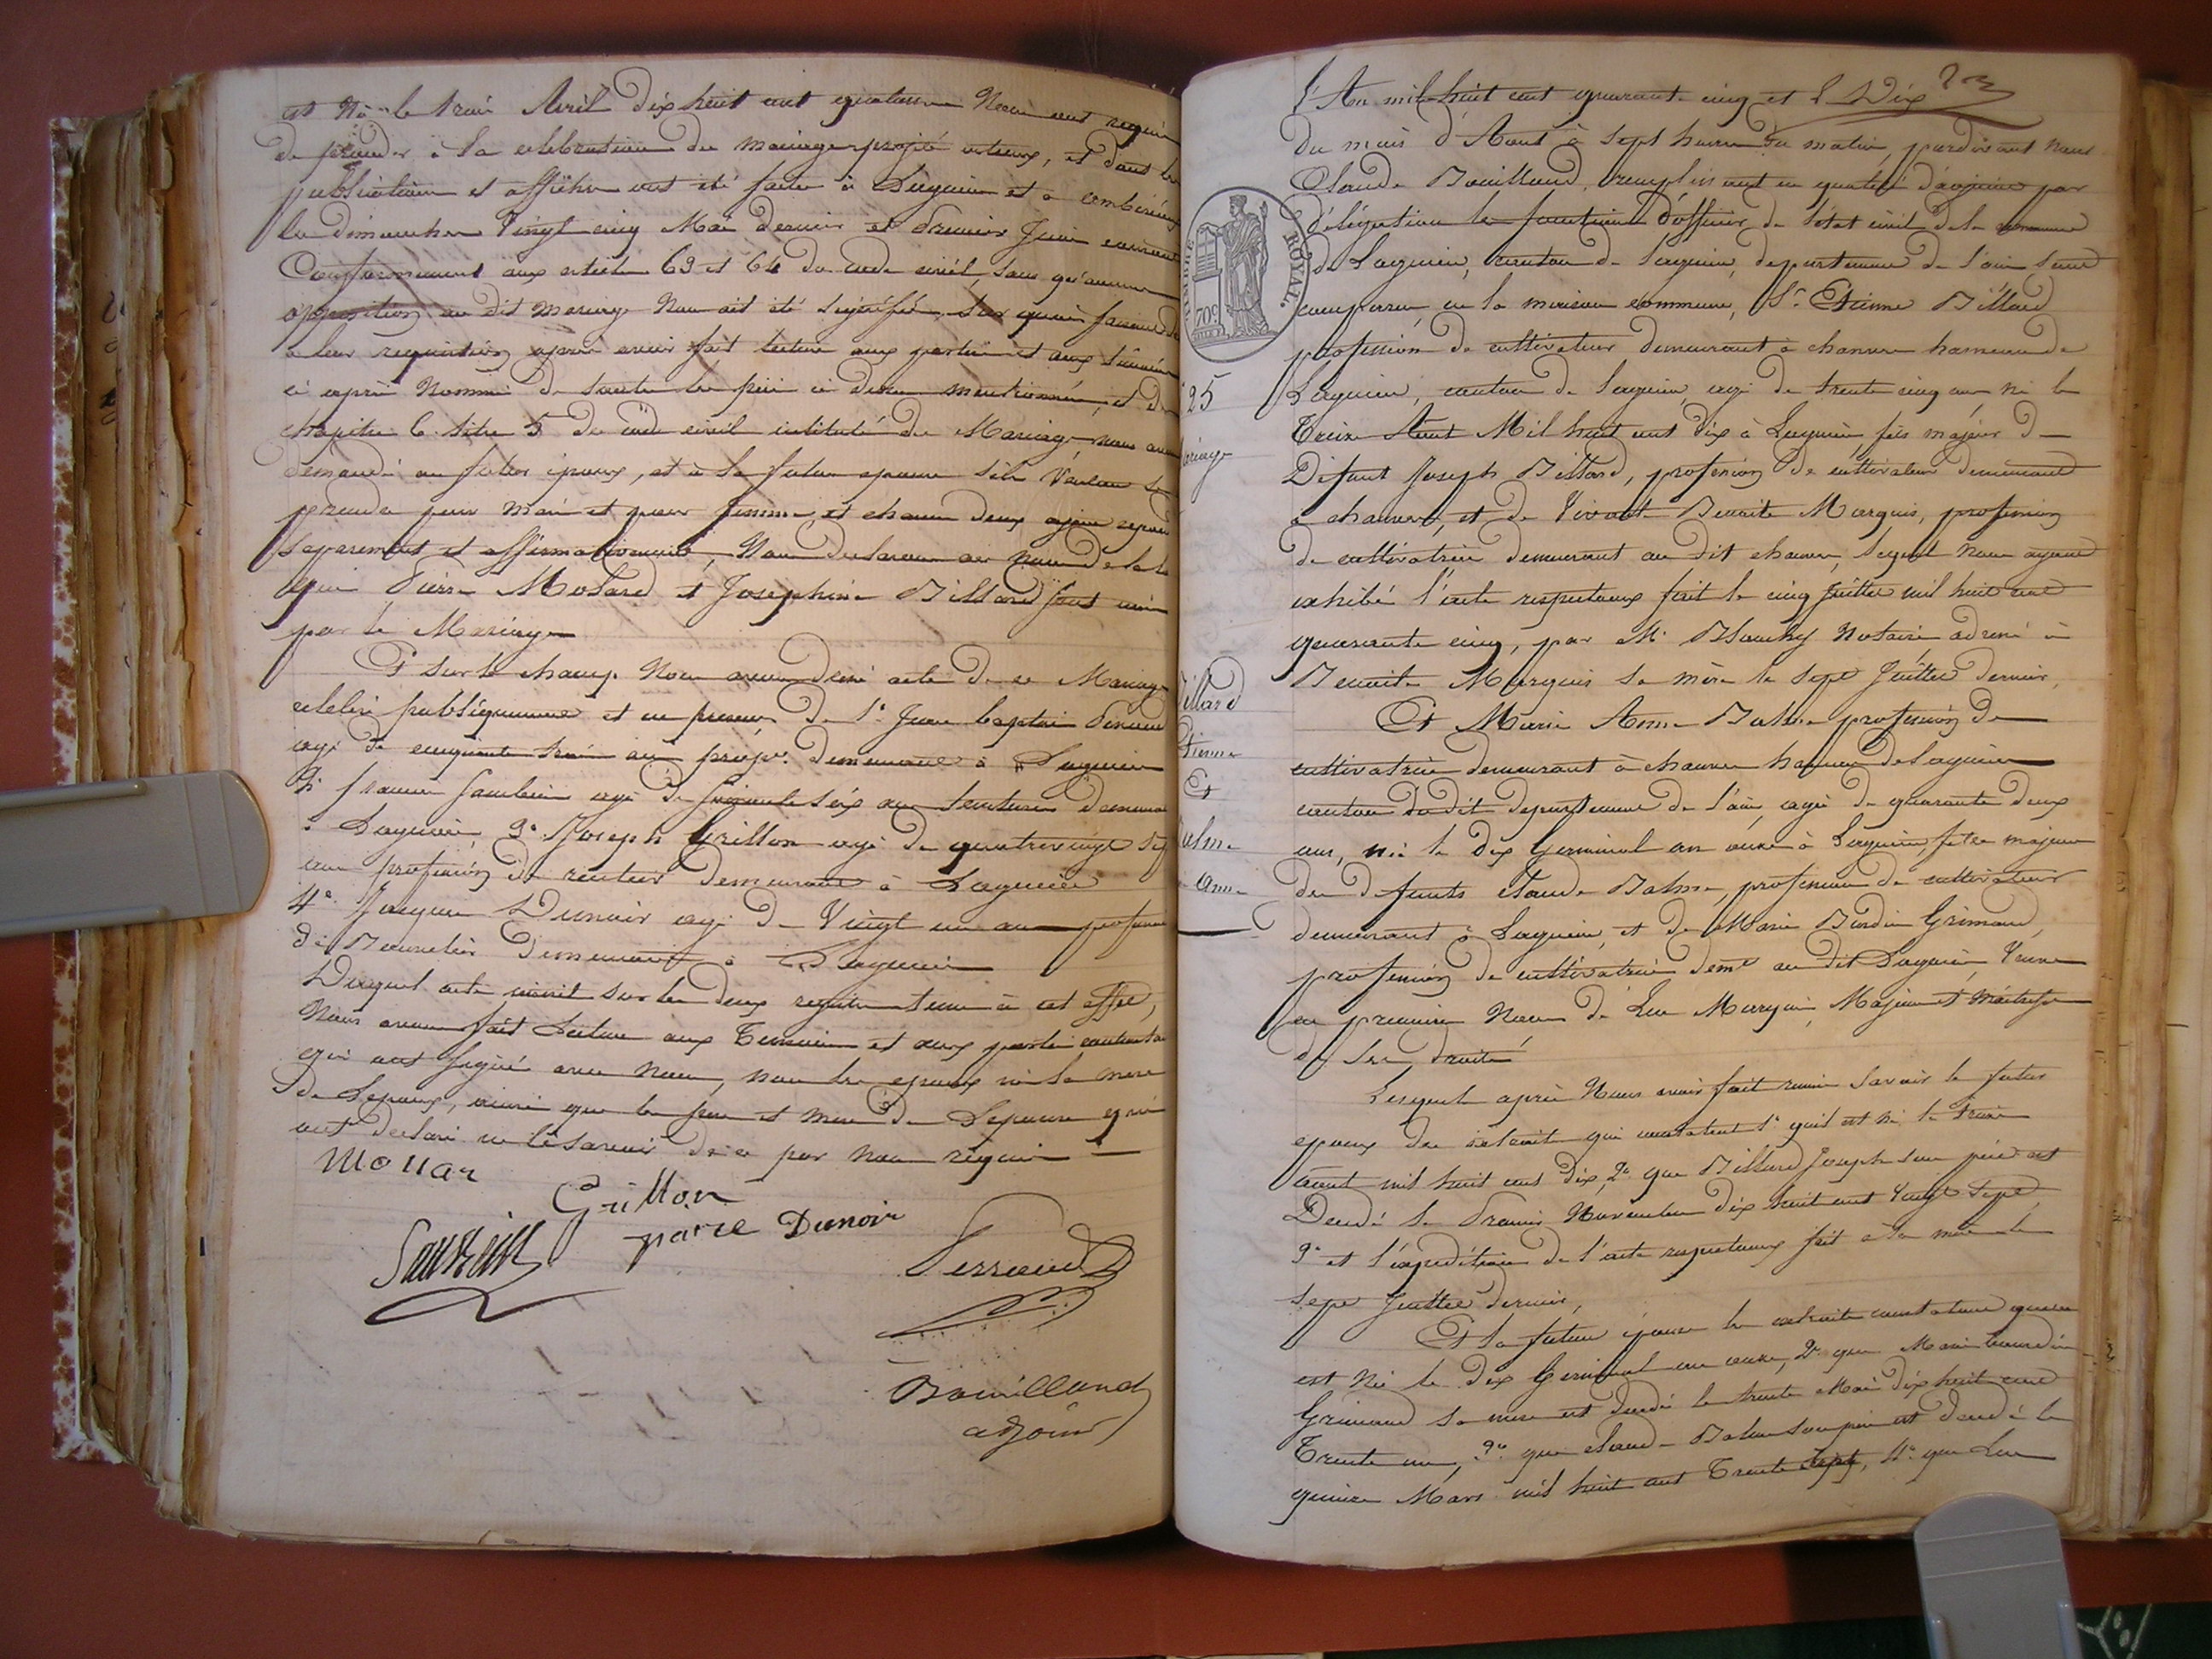 est né le trois Avril dix huit cent quatorze Nous ont requis
de proceder à la celebration du mariage projeté entreux, et dont les
publications et affiches ont été faites à Lagnieu et à
les dimanches Vingt cinq Mai dernier et Premier Juin courant
Conformement aux articles 63 et 64 du code civil, sans qu'aucune
opposition au dit mariage Nous ait été signifiée, Sur quoi faisant droit
à leur requisition après avoir fait lecture aux parties et aux témoins
ci après Nommés de toutes les pièces ci dessus mentionnées, et du
chapitre 6 titre 5 du code civil intitulé du Mariage, nous avons
demandé au futur époux, et à la future epouse s'ils veulent se
prendre pour mari et pour femme, et chacun deux ayant repondu
separement et affirmativement, Nous declarons au nom de la loi
que Pierre Molard et Josephine Billard sont unis
par le Mariage
Et sur le champ Nous avons dressé acte de ce Mariage
celebré publiquement et en presence de 1° Jean Baptiste
agé de cinquante trois ans prop.re demeurant à Lagnieu
2° agé de six ans demeurant
à Lagnieu, 3° Joseph Grillon agé de quatrevingt
ans profession de rentier demeurant à Lagnieu
4° Jacques Dunoir agé de Vingt un ans profession
de Bourrelier demeurant à Lagnieu
Duquel acte inscrit sur les deux registres tenus à cet effet,
Nous avons fait Lecture aux Temoins et aux parties contractantes
qui ont signé avec Nous, non les epoux ni la mere
de Lepoux, ainsi que les pere et mere de Lepouse qui
ont declaré ne le savoir de ce par Nous requis
Mollar
Grillon
Dunoir
Perraud
Bouilland
adjoint
L'An mil huit cent quarante cinq et le Dix
du mois d'Aout à sept heures du matin, pardevant nous
Claude Bouilland, remplissant en qualité d'adjoint par
délégation les fonctions d'officier de l'état civil de la commune
de Lagnieu, canton de Lagnieu, departement de l'ain, sont
comparus en la maison commune, S.r Etienne Billard
profession de cultivateur demeurant à chanves hameau de
Lagnieu, canton de Lagnieu, agé de trente cinq ans, né le
Treize Aout Mil huit cent dix à Lagnieu fils majeur de
Défunt Joseph Billard, profession de cultivateur demeurant
à chanves, et de Vivante Benoite Marguis, profession
de cultivatrice demeurant au dit chanves, lequel nous ayant
exhibé l'acte respectueux fait le cinq Juillet mil huit cent
quarante cinq, par M.e Notaire adressé à
Benoite Marguis sa mère le sept Juillet dernier,
Et Marie Anne Balme profession de
cultivatrice demeurant à chanves hameau de Lagnieu
canton du dit departement de l'ain, agée de quarante deux
ans, née le dix Germinal an onze à Lagnieu, fille majeure
de defunts Claude Balme, profession de cultivateur
demeurant à Lagnieu, et de Marie Grimaud,
profession de cultivatrice dem.t au dit Lagnieu, Veuve
en premières Noces de Luc Marguis, Majeure et maitresse
de ses droits
Lesquels après Nous avoir fait remis savoir le futur
epoux des extraits qui constatent 1° quil est né le treize
aout mil huit cent dix, 2° que Billard Joseph son père est
Decedé le Premier Novembre dix huit cent Vingt Sept,
3° et l'expédition de l'acte respectueux fait à sa mère le
sept Juillet dernier,
Et la future épouse les extraits constatant quelle
est née le dix Germinal an onze, 2° que Marie
Grimaud sa mere est decedée le trente Mai dix huit cent
Trente un, 3° que Claude Balme son père est decedé le
quinze Mars mil huit cent Trente Sept, 4° que Luc
TIMBRE ROYAL.
70c
25
Mariage
Billard
Etienne
Et
Balme
Anne